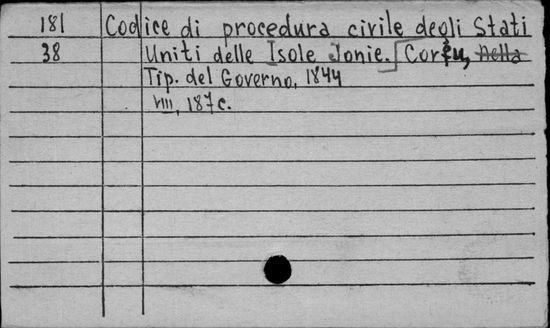 181 Codice di procedura civile degli Stati
38 Uniti delle Isole Jonie. [Corfu, Nella
Tip. del Governo, 1844
VIII, 187 c.